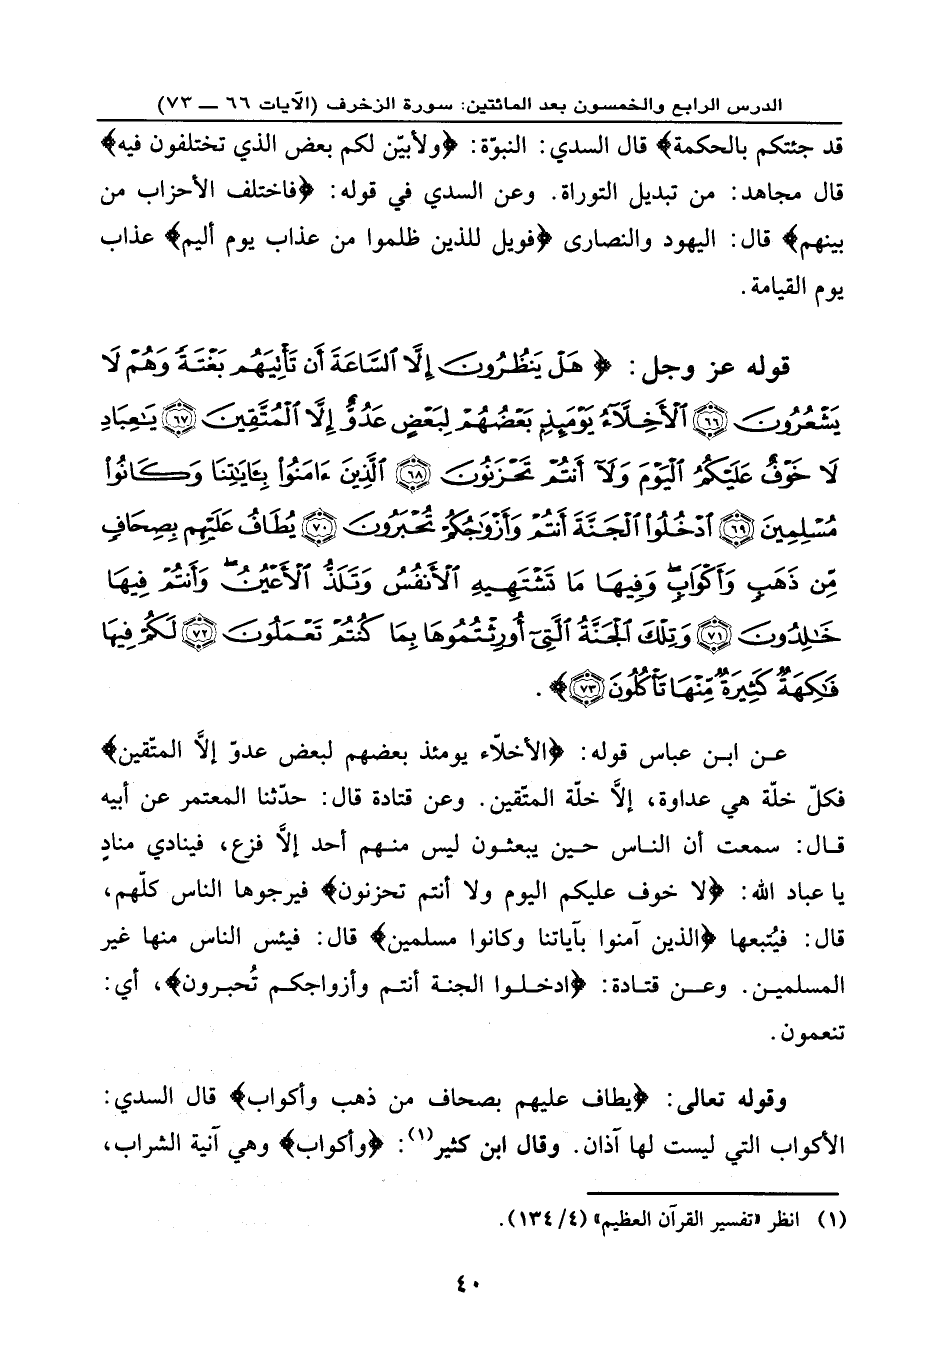 الدرس الرابع والخمسون بعد المائتين: سورة الزخرف (الآيات ٦٦ — ٧٣)
قد جئتكم بالحكمة﴾ قال السدي: النبوّة: ﴿ولأبيّن لكم بعض الذي تختلفون فيه﴾
قال مجاهد: من تبديل التوراة. وعن السدي في قوله: ﴿فاختلف الأحزاب من
بينهم﴾ قال: اليهود والنصارى ﴿فويل للذين ظلموا من عذاب يوم أليم﴾ عذاب
يوم القيامة.
قوله عز وجل: ﴿هَلْ يَنظُرُونَ إِلَّا ٱلسَّاعَةَ أَن تَأْتِيَهُم بَغْتَةً وَهُمْ لَا
يَشْعُرُونَ ﴿٦٦﴾ ٱلْأَخِلَّاءُ يَوْمَئِذٍ بَعْضُهُمْ لِبَعْضٍ عَدُوٌّ إِلَّا ٱلْمُتَّقِينَ ﴿٦٧﴾ يَٰعِبَادِ
لَا خَوْفٌ عَلَيْكُمُ ٱلْيَوْمَ وَلَا أَنتُمْ تَحْزَنُونَ ﴿٦٨﴾ ٱلَّذِينَ ءَامَنُوا۟ بِـَٔايَٰتِنَا وَكَانُوا۟
مُسْلِمِينَ ﴿٦٩﴾ ٱدْخُلُوا۟ ٱلْجَنَّةَ أَنتُمْ وَأَزْوَٰجُكُمْ تُحْبَرُونَ ﴿٧٠﴾ يُطَافُ عَلَيْهِم بِصِحَافٍ
مِّن ذَهَبٍ وَأَكْوَابٍ وَفِيهَا مَا تَشْتَهِيهِ ٱلْأَنفُسُ وَتَلَذُّ ٱلْأَعْيُنُ وَأَنتُمْ فِيهَا
خَٰلِدُونَ ﴿٧١﴾ وَتِلْكَ ٱلْجَنَّةُ ٱلَّتِي أُورِثْتُمُوهَا بِمَا كُنتُمْ تَعْمَلُونَ ﴿٧٢﴾ لَكُمْ فِيهَا
فَٰكِهَةٌ كَثِيرَةٌ مِّنْهَا تَأْكُلُونَ ﴿٧٣﴾﴾.
عن ابن عباس قوله: ﴿الأخلّاء يومئذ بعضهم لبعض عدوّ إلَّا المتّقين﴾
فكلّ خلّة هي عداوة، إلَّا خلّة المتّقين. وعن قتادة قال: حدّثنا المعتمر عن أبيه
قال: سمعت أن الناس حين يبعثون ليس منهم أحد إلَّا فزع، فينادي منادٍ
يا عباد الله: ﴿لا خوف عليكم اليوم ولا أنتم تحزنون﴾ فيرجوها الناس كلّهم،
قال: فيُتبعها ﴿الذين آمنوا بآياتنا وكانوا مسلمين﴾ قال: فيئس الناس منها غير
المسلمين. وعن قتادة: ﴿ادخلوا الجنة أنتم وأزواجكم تُحبرون﴾، أي:
تنعمون.
وقوله تعالى: ﴿يطاف عليهم بصحاف من ذهب وأكواب﴾ قال السدي:
الأكواب التي ليست لها آذان. وقال ابن كثير(١): ﴿وأكواب﴾ وهي آنية الشراب،
(١) انظر «تفسير القرآن العظيم» (٤/ ١٣٤).
٤٠